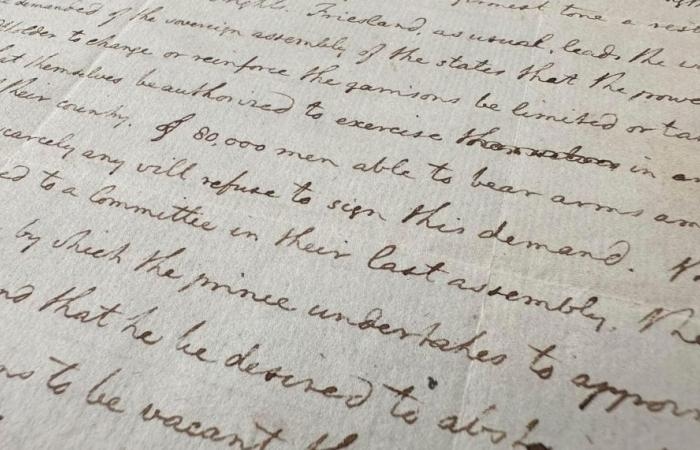 rights. Friesland, as usual, leads the
demanded of the sovereign assembly of the states that the
holder to change or reinforce the garrisons be limited or
themselves be authorized to exercise in
their country. Of 80,000 men able to bear arms
scarcely any will refuse to sign this demand.
to a Committee in their last assembly. The
by which the prince undertakes to
that he be desired to
to be vacant